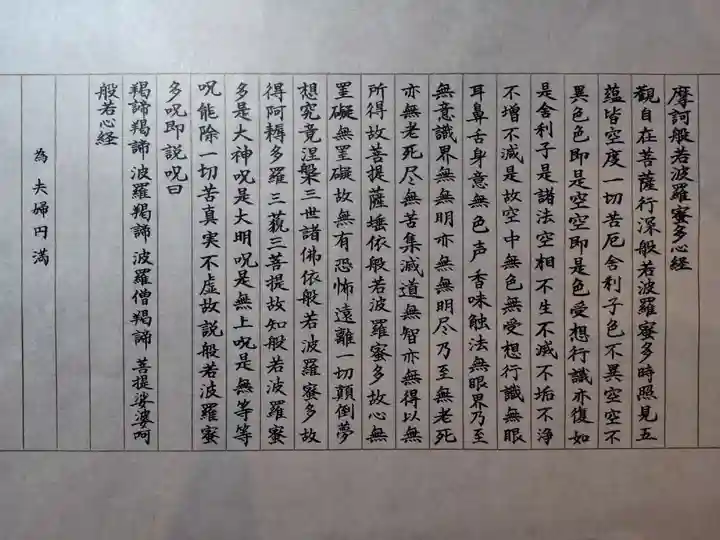 摩訶般若波羅蜜多心経
觀自在菩薩行深般若波羅蜜多時照見五
蘊皆空度一切苦厄舍利子色不異空空不
異色色即是空空即是色受想行識亦復如
是舍利子是諸法空相不生不滅不垢不浄
不增不滅是故空中無色無受想行識無眼
耳鼻舌身意無色声香味触法無眼界乃至
無意識界無無明亦無無明尽乃至無老死
亦無老死尽無苦集滅道無智亦無得以無
所得故菩提薩埵依般若波羅蜜多故心無
罣礙無罣礙故無有恐怖遠離一切顛倒夢
想究竟涅槃三世諸佛依般若波羅蜜多故
得阿耨多羅三藐三菩提故知般若波羅蜜
多是大神呪是大明呪是無上呪是無等等
呪能除一切苦真実不虚故説般若波羅蜜
多呪即説呪曰
羯諦羯諦波羅羯諦波羅僧羯諦菩提娑婆呵
般若心経
為夫婦円満